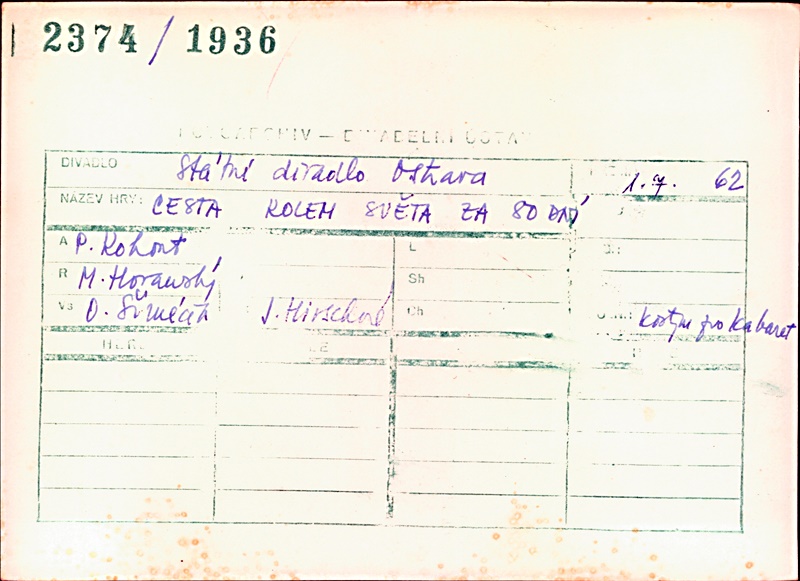 2374 / 1936
FOTOARCHIV — DIVADELNÍ ÚSTAV
DIVADLO Státní divadlo Ostrava 1. 7. 62
NÁZEV HRY: CESTA KOLEM SVĚTA ZA 80 DNÍ
A P. Kohout L
R M. Horanský Sh
Vs O. Šimáček J. Hirschová Ch kostym pro Kabaret
HEREC